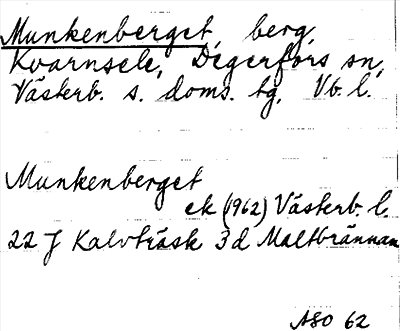 Munkenberget, berg,
Kvarnsele, Degerfors sn,
Västerb. s. doms. tg, Vb. l.
Munkenberget
ek (1962) Västerb. l.
22 J Kalvträsk 3d Maltbrännan
ASO 62